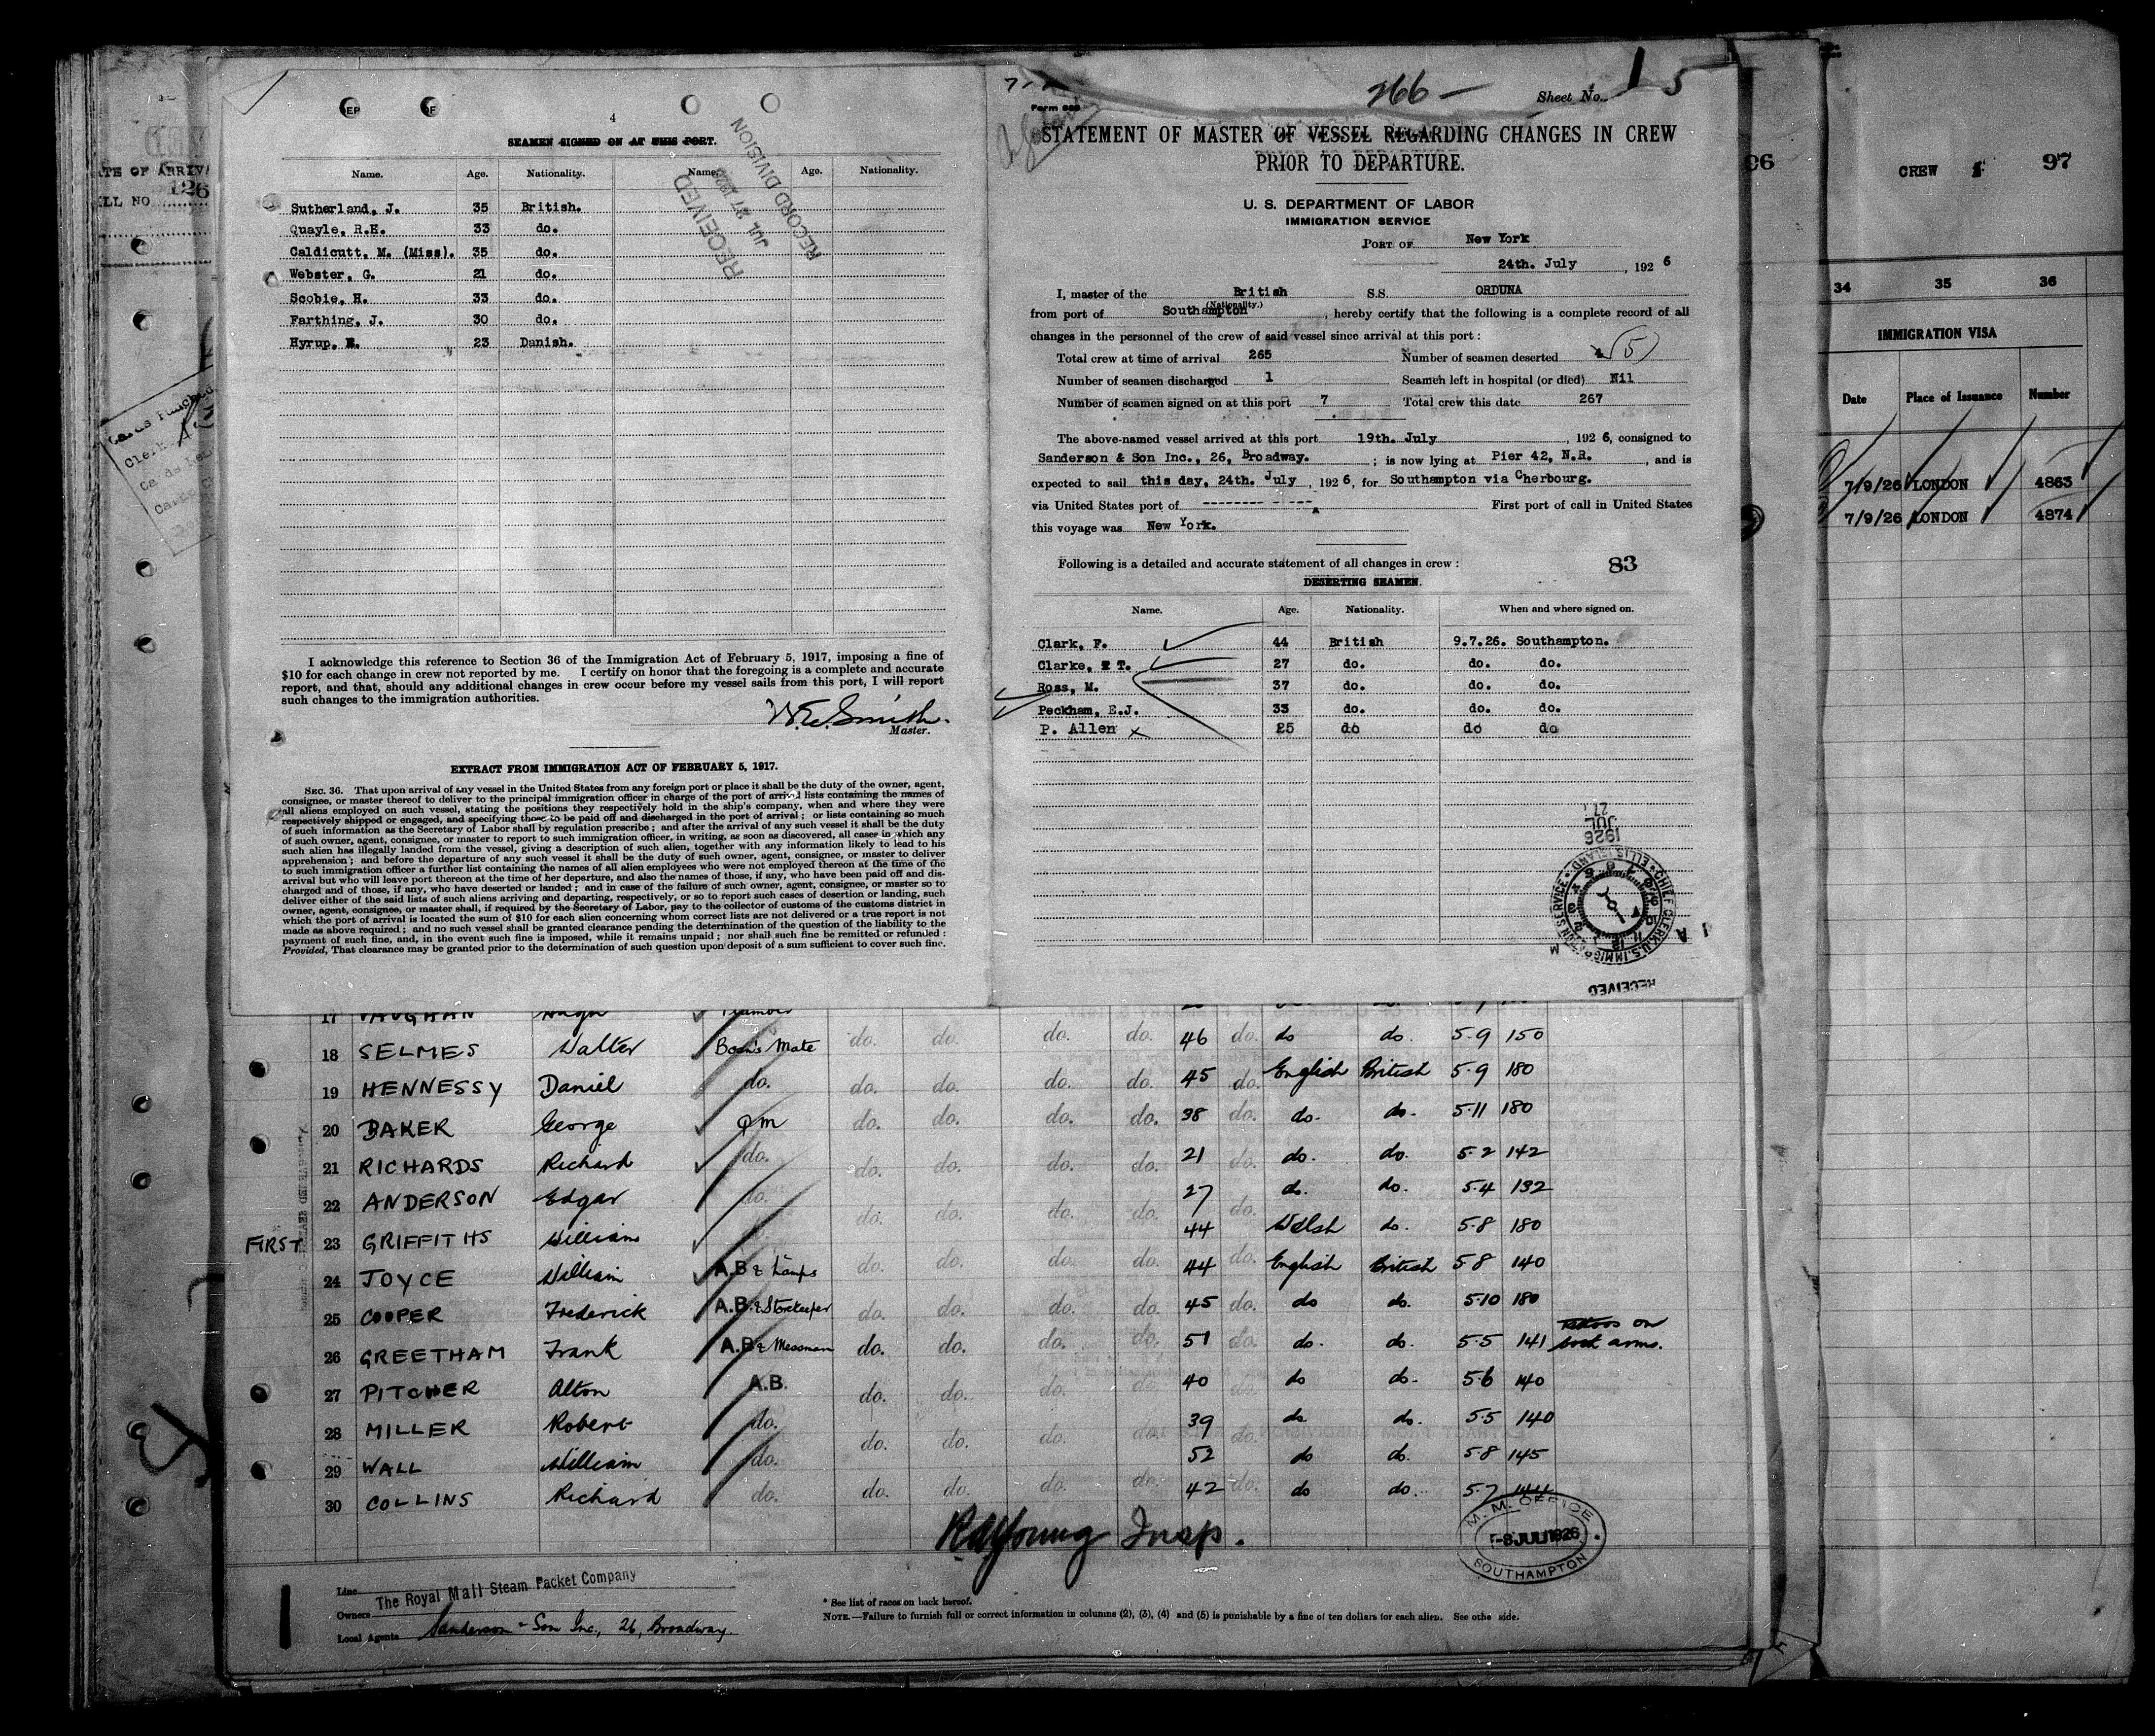 4
SEAMEN SIGNED ON AT THIS PORT.
Name. Age. Nationality. Name. Age. Nationality.
Sutherland, J. 35 British.
Quayle, R.K. 33 do.
Caldicutt, M. (Miss). 35 do.
Webster, G. 21 do.
Scobie, H. 33 do.
Farthing, J. 30 do.
Hyrup, E. 23 Danish.
RECEIVED
JUL 27 1926
RECORD DIVISION
I acknowledge this reference to Section 36 of the Immigration Act of February 5, 1917, imposing a fine of
$10 for each change in crew not reported by me. I certify on honor that the foregoing is a complete and accurate
report, and that, should any additional changes in crew occur before my vessel sails from this port, I will report
such changes to the immigration authorities.
W.E. Smith.
Master.
EXTRACT FROM IMMIGRATION ACT OF FEBRUARY 5, 1917.
SEC. 36. That upon arrival of any vessel in the United States from any foreign port or place it shall be the duty of the owner, agent,
consignee, or master thereof to deliver to the principal immigration officer in charge of the port of arrival lists containing the names of
all aliens employed on such vessel, stating the positions they respectively hold in the ship's company, when and where they were
respectively shipped or engaged, and specifying those to be paid off and discharged in the port of arrival; or lists containing so much
of such information as the Secretary of Labor shall by regulation prescribe; and after the arrival of any such vessel it shall be the duty
of such owner, agent, consignee, or master to report to such immigration officer, in writing, as soon as discovered, all cases in which any
such alien has illegally landed from the vessel, giving a description of such alien, together with any information likely to lead to his
apprehension; and before the departure of any such vessel it shall be the duty of such owner, agent, consignee, or master to deliver
to such immigration officer a further list containing the names of all alien employees who were not employed thereon at the time of the
arrival but who will leave port thereon at the time of her departure, and also the names of those, if any, who have been paid off and dis-
charged and of those, if any, who have deserted or landed; and in case of the failure of such owner, agent, consignee, or master so to
deliver either of the said lists of such aliens arriving and departing, respectively, or so to report such cases of desertion or landing, such
owner, agent, consignee, or master shall, if required by the Secretary of Labor, pay to the collector of customs of the customs district in
which the port of arrival is located the sum of $10 for each alien concerning whom correct lists are not delivered or a true report is not
made as above required; and no such vessel shall be granted clearance pending the determination of the question of the liability to the
payment of such fine, and, in the event such fine is imposed, while it remains unpaid; nor shall such fine be remitted or refunded:
Provided, That clearance may be granted prior to the determination of such question upon deposit of a sum sufficient to cover such fine.
266 - Sheet No. 1 5
Form 689
STATEMENT OF MASTER OF VESSEL REGARDING CHANGES IN CREW
PRIOR TO DEPARTURE.
U. S. DEPARTMENT OF LABOR
IMMIGRATION SERVICE
PORT OF New York
24th. July, 1926
I, master of the British S.S. ORDUNA
(Nationality.)
from port of Southampton, hereby certify that the following is a complete record of all
changes in the personnel of the crew of said vessel since arrival at this port:
Total crew at time of arrival 265 Number of seamen deserted (5)
Number of seamen discharged 1 Seamen left in hospital (or died) Nil
Number of seamen signed on at this port 7 Total crew this date 267
The above-named vessel arrived at this port 19th. July, 1926, consigned to
Sanderson & Son Inc., 26, Broadway. ; is now lying at Pier 42, N.R., and is
expected to sail this day, 24th. July, 1926, for Southampton via Cherbourg.
via United States port of ---------- First port of call in United States
this voyage was New York.
Following is a detailed and accurate statement of all changes in crew: 83
DESERTING SEAMEN.
Name. Age. Nationality. When and where signed on.
Clark, F. 44 British 9.7.26. Southampton.
Clarke, T. 27 do. do. do.
Ross, M. 37 do. do. do.
Peckham, E.J. 33 do. do. do.
P. Allen x 25 do do do
1926
JUL
27
CHIEF CLERK, U.S. IMMIGRATION SERVICE ELLIS ISLAND
RECEIVED
96
CREW 97
34 35 36
IMMIGRATION VISA
Date Place of Issuance Number
7/9/26 LONDON 4863
7/9/26 LONDON 4874
17 VAUGHAN Hugh Plumber
18 SELMES Walter Bosn's Mate do. do. do. do. 46 do. do do. 5-9 150
19 HENNESSY Daniel do. do. do. do. do. 45 do. English British 5-9 180
20 BAKER George Q M do. do. do. do. 38 do. do. do. 5-11 180
21 RICHARDS Richard do. do. do. do. do. 21 do. do. do. 5-2 142
22 ANDERSON Edgar do. 27 do. do. 5-4 132
FIRST 23 GRIFFITHS William do. do. do. do. 44 do. Welsh do. 5-8 180
24 JOYCE William A.B & Lamps do. do. do. do. 44 do. English British 5-8 140
25 COOPER Frederick A.B. & Storekeeper do. do. do. do. 45 do. do do. 5-10 180
26 GREETHAM Frank A.B & Messman do. do. do. do. 51 do. do. do. 5-5 141 tattoos on both arms.
27 PITCHER Alton A.B. do. do. do. do. 40 do. do do. 5-6 140
28 MILLER Robert do. 39 do do. 5-5 140
29 WALL William do. do. do. do. do. 52 do. do do. 5-8 145
30 COLLINS Richard do. do. do. do. do. 42 do. do do. 5-7 144
Young Insp.
M. M. OFFICE
-8 JUL 1926
SOUTHAMPTON
Line The Royal Mail Steam Packet Company
Owners
Local Agents Sanderson & Son Inc., 26, Broadway.
* See list of races on back hereof.
NOTE.—Failure to furnish full or correct information in columns (2), (3), (4) and (5) is punishable by a fine of ten dollars for each alien. See othe side.